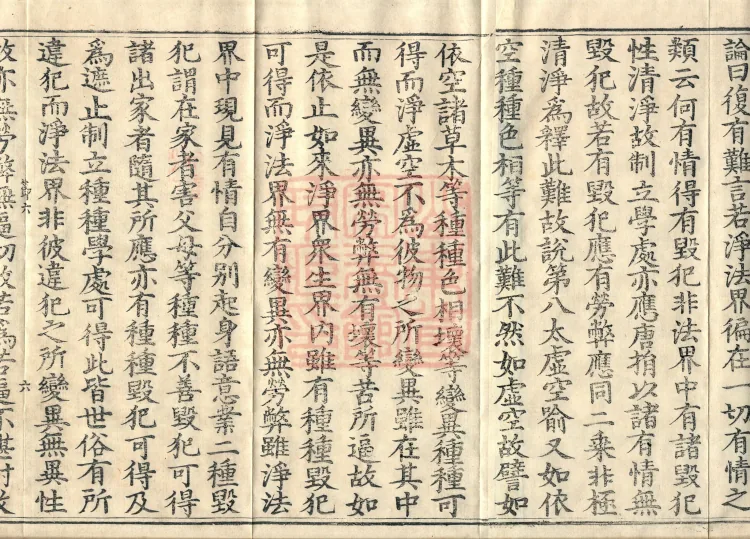 論曰復有難言若淨法界徧在一切有情之
類云何有情得有毀犯非法界中有諸毀犯
性清淨故制立學處亦應唐捐以諸有情無
毀犯故若有毀犯應有勞弊應同二乗非極
清淨為釋此難故說第八太虛空喻又如依
空種種色相等有此難不然如虛空故譬如
依空諸草木等種種色相壞等變異種種可
得而淨虛空不為彼物之所變異雖在其中
而無變異亦無勞弊無有壞等苦所逼故如
是依止如來淨界眾生界內雖有種種毀犯
可得而淨法界無有變異亦無勞弊雖淨法
界中現見有情自分別起身語意業二種毀
犯謂在家者害父母等種種不善毀犯可得
諸出家者隨其所應亦有種種毀犯可得及
為遮止制立種種學處可得此皆世俗有所
違犯而淨法界非彼違犯之所變異無異性
六
故亦無勞弊無逼切故若為苦逼